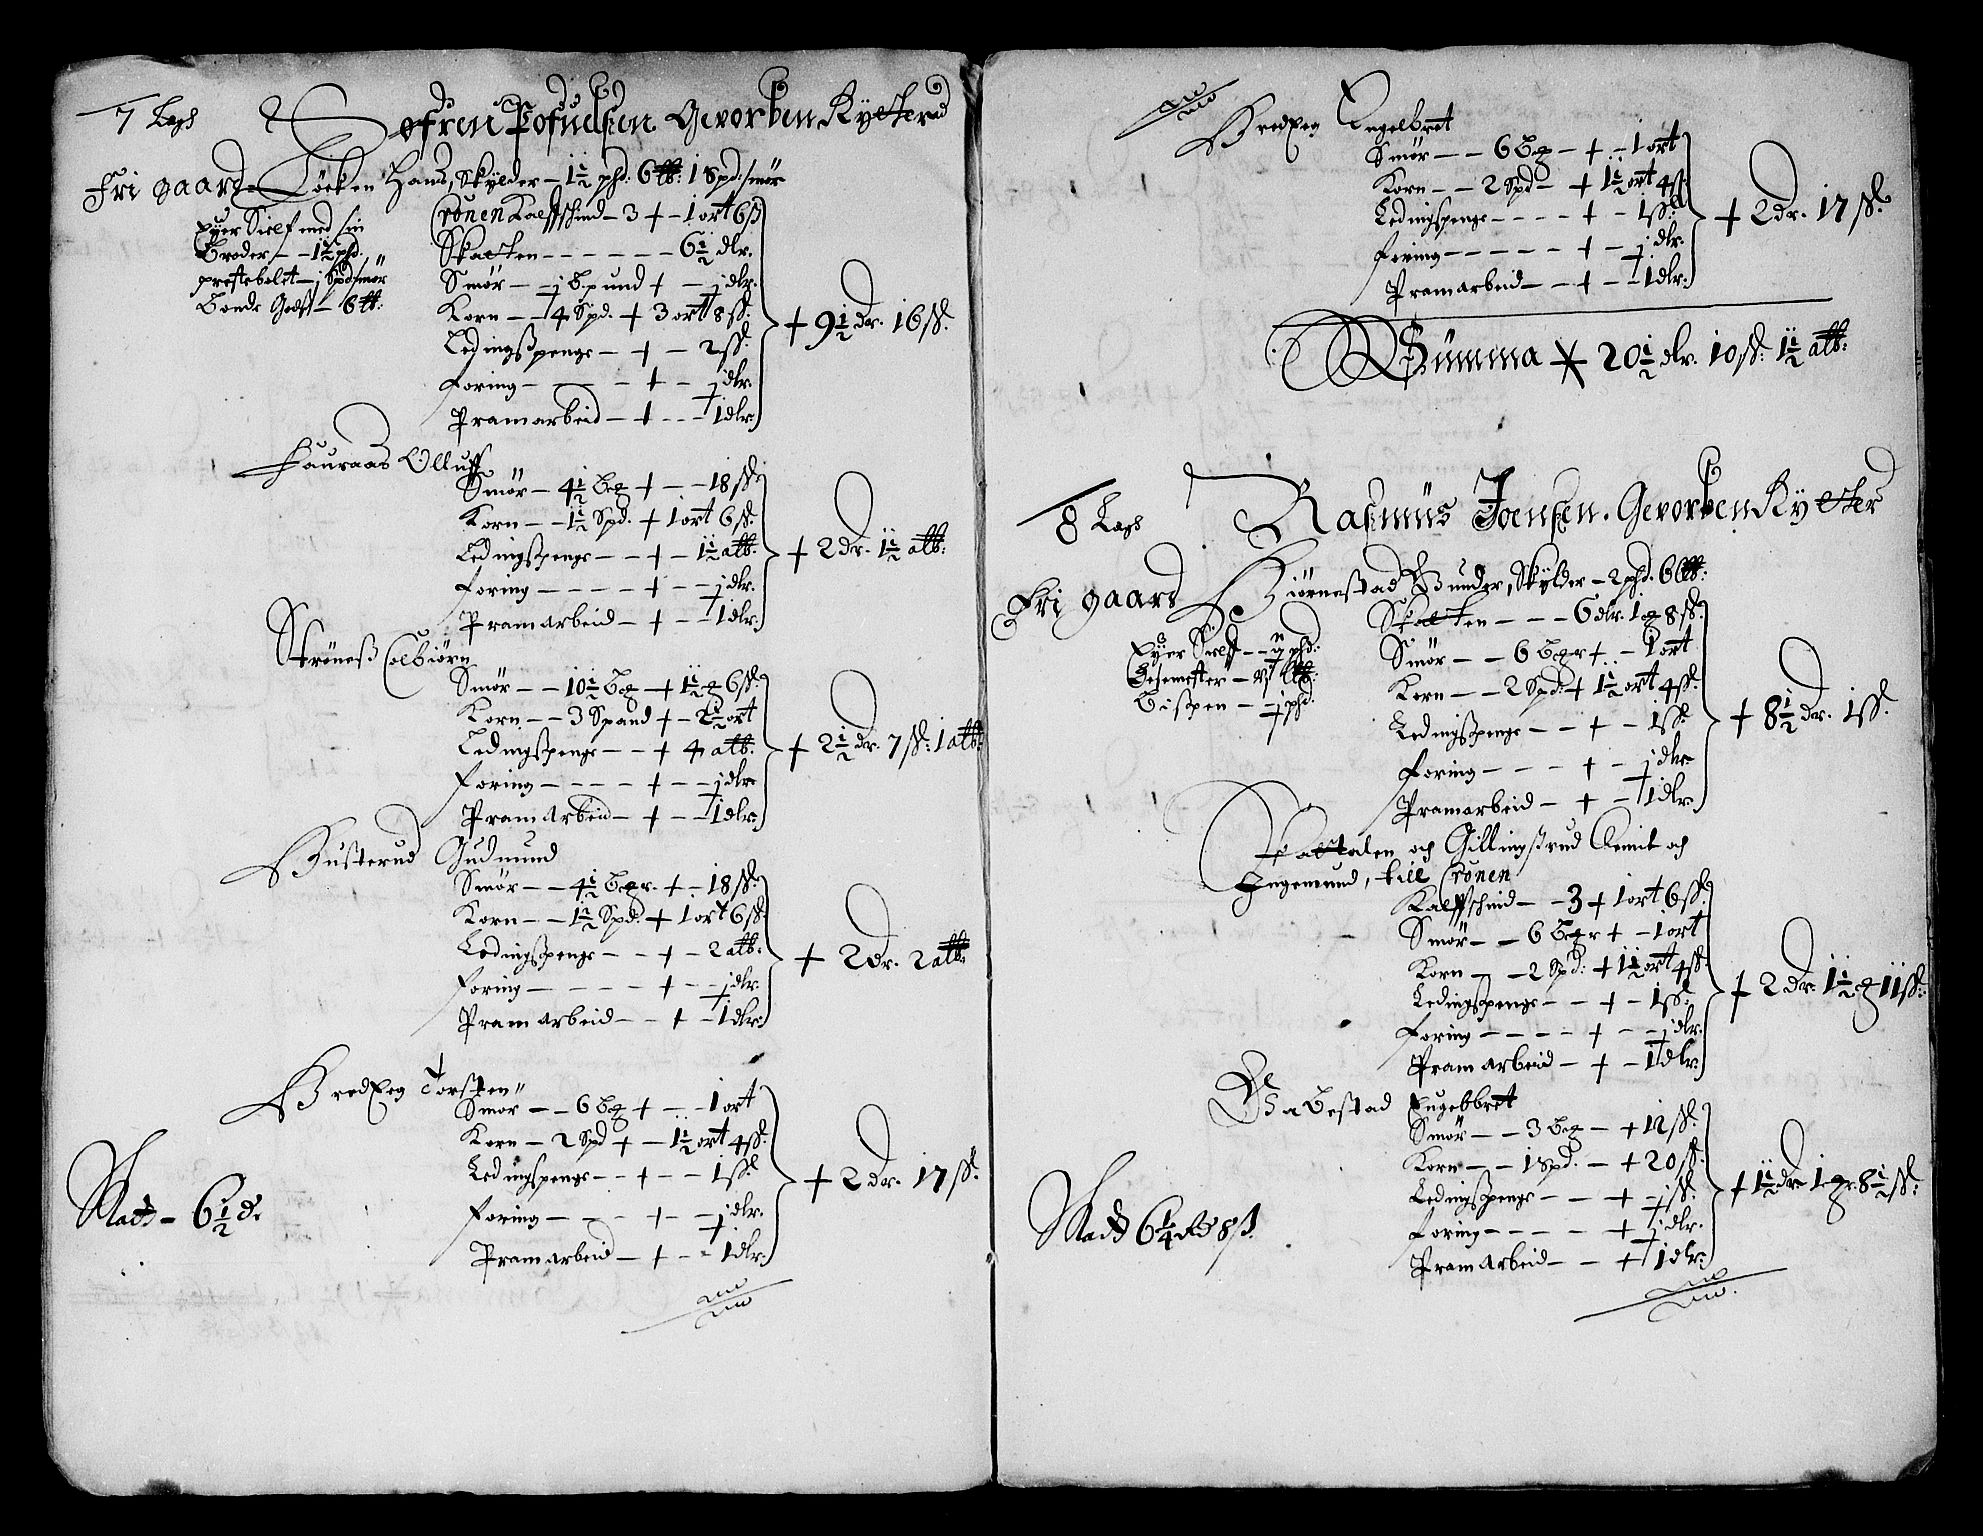 7 Legh
Søfren Pofuelsen Gevorben Rytter
Fri gaard Løcken Hans, Skylder - 1½ phd: 6 ℔: 1 Spd: smør
Eyer Sielf med sin
Broder - - 1½ phd.
prestebolet - j Spd smør
Bonde Godß - 6 ℔:
Cronen Kalffschind - 3 + - 1 ort 6 ß
Skatten - - - - - - 6½ dlr.
Smør - - j B pund + - j dlr.
Korn - - 4 Spd. + 3 ort 8 ß.
Ledingßpenge - + - 2 ß.
Foring - - - - + - j dlr.
Pramarbeid - + - - 1 dlr.
+ 9½ dr. 16 ß.
Hauraas Olluff
Smør - 4½ Bg + - - 18 ß
Korn - - 1½ Spd. + 1 ort 6 ß.
Ledingßpenge - - + - 1½ alb:
Foring - - - - - + - - j dlr.
Pramarbeid - + - - 1 dlr.
+ 2 dr. 1½ alb:
Strøneß Colbiørn
Smør - - 10½ Bg - + 1½ g 6 ß.
Korn - - 3 Spand + - 2½ ort
Ledingßpenge - - + 4 alb.
Foring - - - - - + - - j dlr.
Pramarbeid - + - - 1 dlr.
+ 2½ dr. 7 ß: 1 alb:
Busterud Gudmund
Smør - - 4½ Bgr. + - 18 ß.
Korn - - 1½ Spd. + 1 ort 6 ß.
Ledingßpenge - - + - 2 alb:
Foring - - - - - + - - j dlr.
Pramarbeid - - + - 1 dlr.
+ 2 dr. 2 alb
Bredxeg Torsten
Smør - - 6 Bg + - - 1 ort
Korn - 2 Spd + - 1½ ort 4 ß.
Ledingspenge - - + - - 1 ß.
Foring - - - - + - - j dlr.
Pramarbeid - + - - 1 dlr.
+ 2 dr. 17 ß.
Skatt - 6½ d.
Bredxeg Engelbret
Smør - - 6 Bg - + - 1 ort
Korn - - 2 Spd - + 1½ ort 4 ß.
Ledingspenge - - - - + - 1 ß.
Foring - - - - - + - j dlr.
Pramarbeid - - + - - 1 dlr.
+ 2 dr. 17 ß.
Summa + 20½ dlr. 10 ß: 1½ alb:
8 Legh
Rasmus Joensen. Gevorben Rytter
Fri gaard Biørnestad Gunder, Skylder - 2 phd. 6 ℔:
Eyer Sielff - - phd:
- vj ℔:
Bispen - - j phd.
Skatten - - - 6 dlr. 1 g 8 ß.
Smør - - 6 Bgr + - 1 ort
Korn - - 2 Spd: + 1½ ort 4 ß.
Ledingßpenge - - + - 1 ß.
Foring - - - - + - j dlr
Pramarbeid - + - 1 dlr.
+ 8½ dr. 1 ß.
och Gillingßrud och
Ingemund, till Cronen
Kalffschind - - 3 + 1 ort 6 ß.
Smør - - 6 Bgr + - 1 ort
Korn - - 2 Spd: + 1½ ort 4 ß
Ledingßpenge - - + - 1 ß.
Foring - - - - + - - j dlr.
Pramarbeid - + - 1 dlr.
+ 2 dr. 1½ g 11 ß.
Engebbret
Smør - - 3 Bg - + 12 ß.
Korn - - 1 Spd. - + 20 ß.
Ledingßpenge - - + - j ß.
Foring - - - - - + j dlr.
Pramarbeid - - + 1 dlr.
+ 1½ dr 1 gr. 8½ ß.
Skatt 6¼ dlr 8 ß.